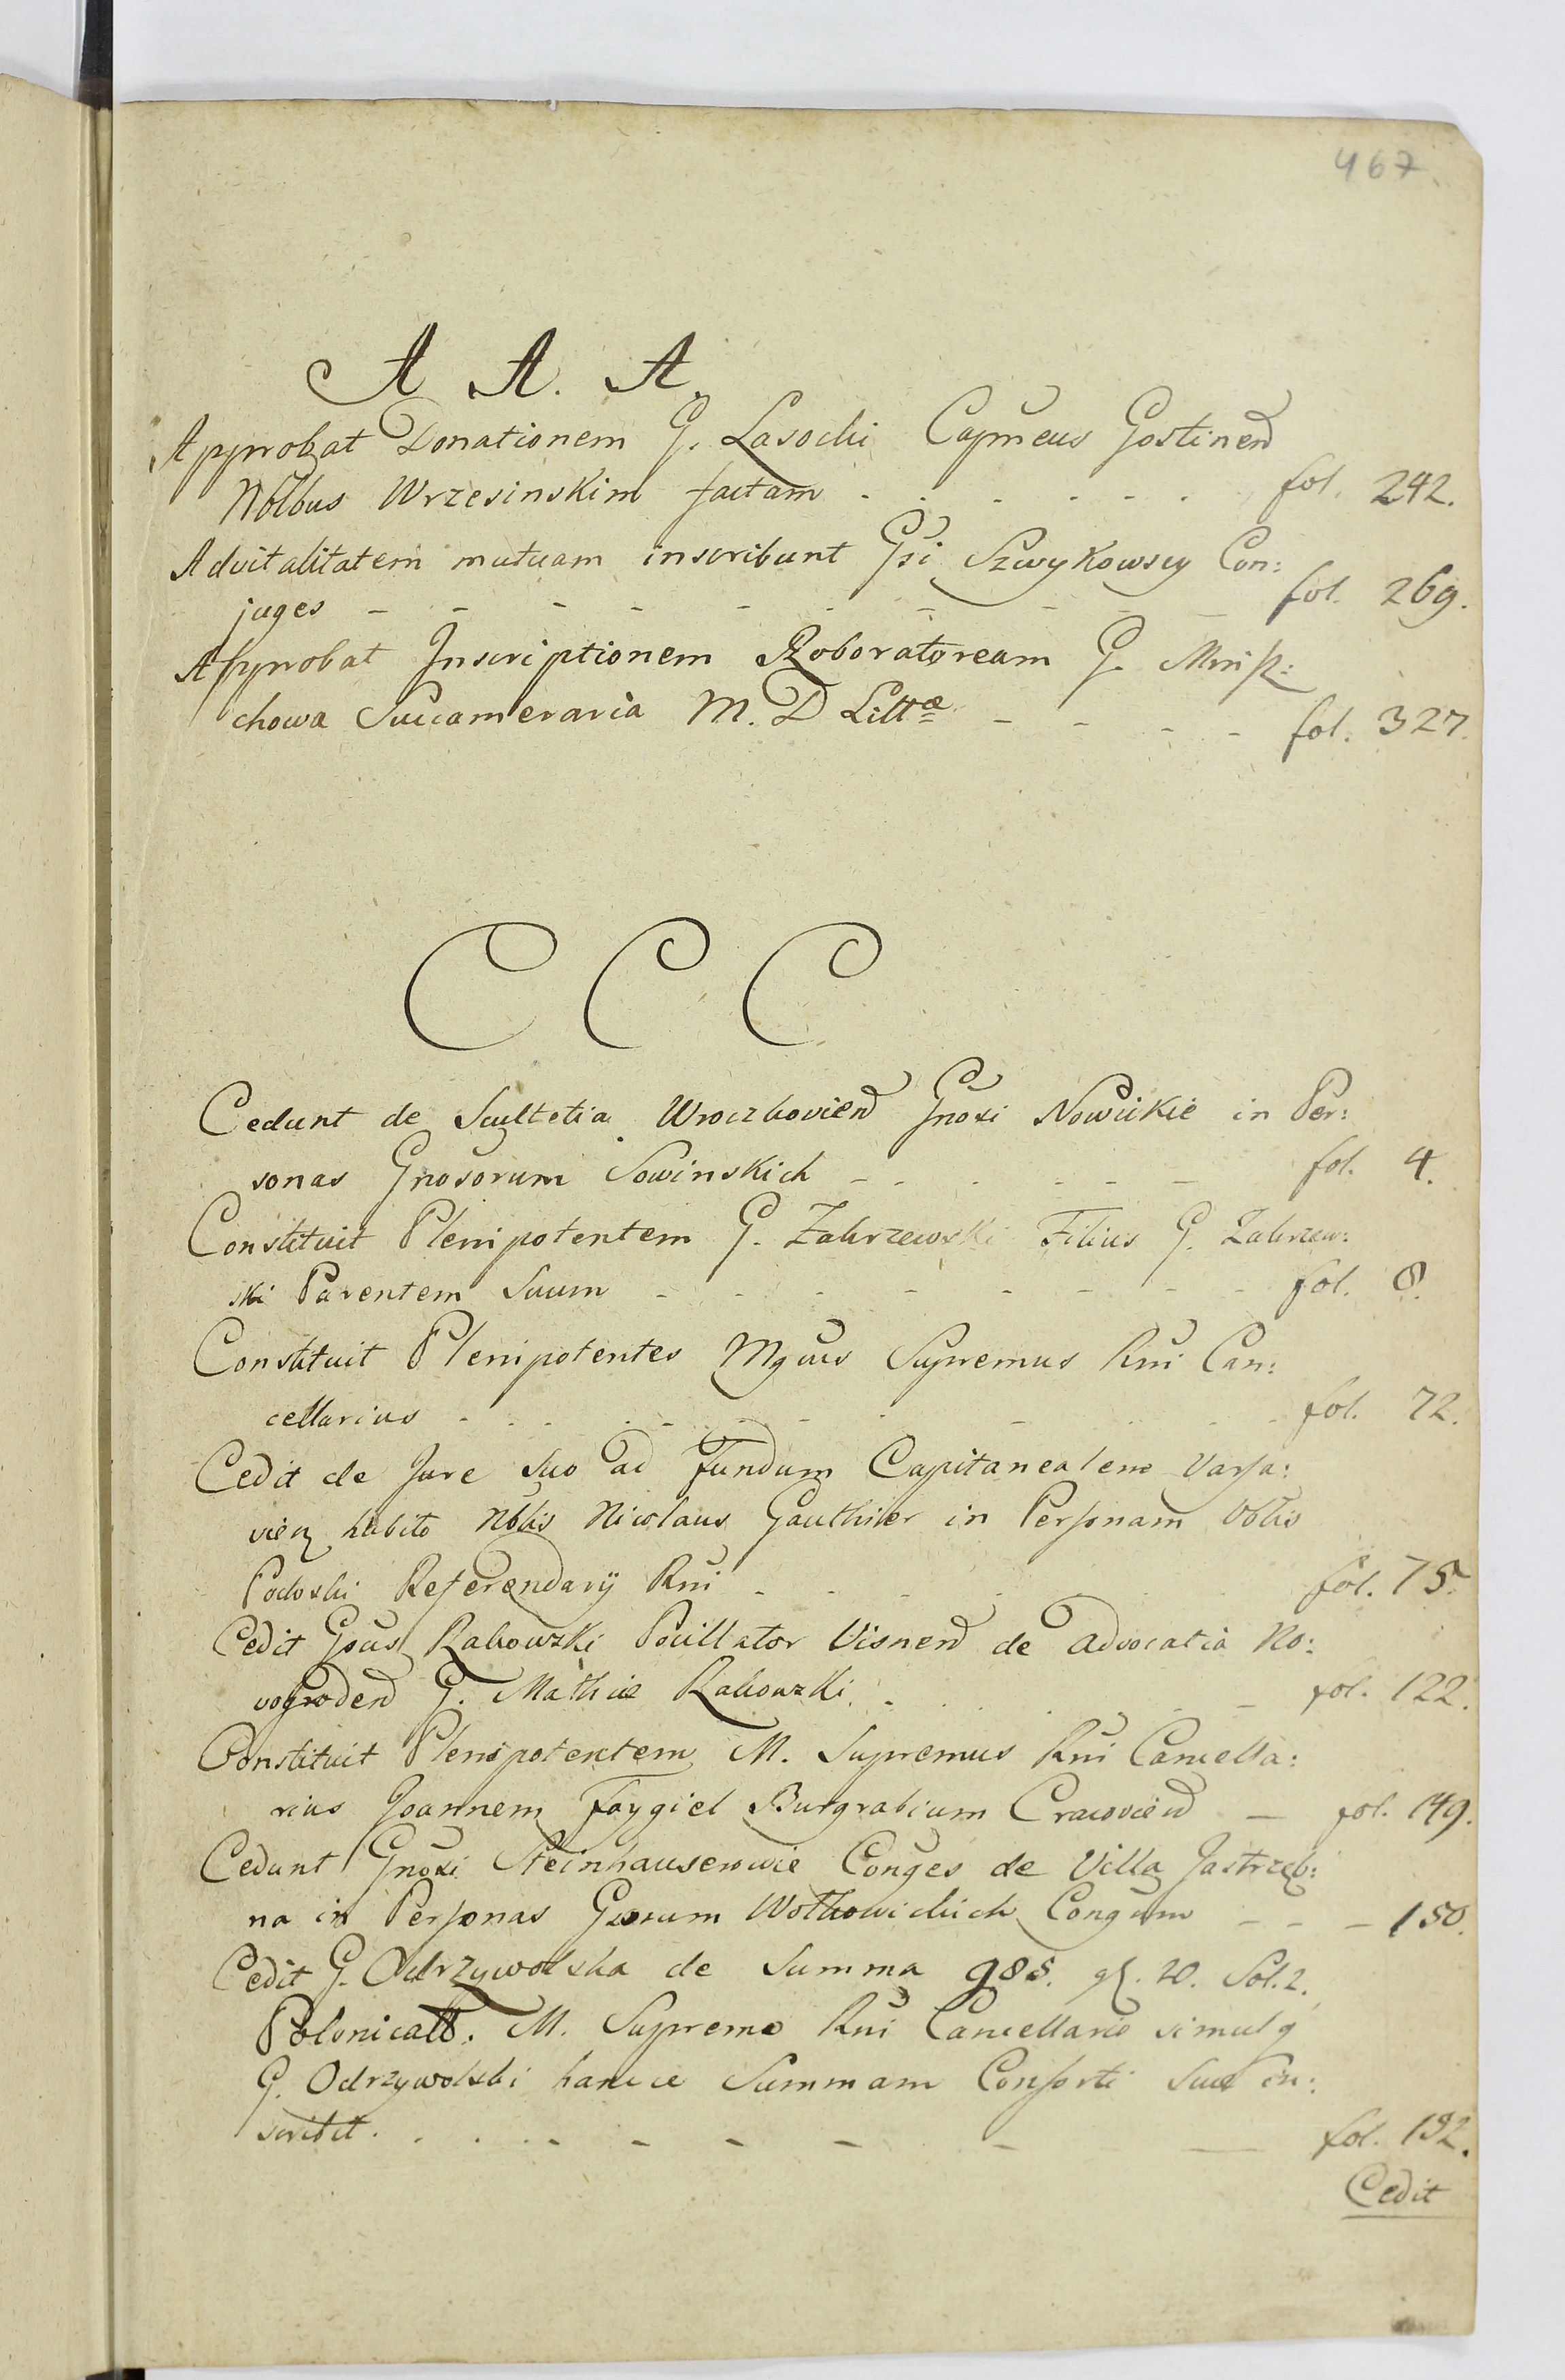 467.
A A. A.
Approbat Donationem G. Lasocki Capneus Gostinen
Nobbus Wrzesinskim factam - - - - - - fol. 242.
Advitalitatem mutuam inscribunt Gsi Szwykowscy Con:
juges - - - - - - - - - - fol. 269.
Approbat Inscriptionem Roboratoream G. Mnisz:
chowa Succameraria M. D Littæ - - - - fol. 327.
C C C
Cedunt de Scultetia Wroczkovien Gnosi Nowickie in Per:
sonas Gnosorum Sowinskich - - - - - - fol. 4.
Constituit Plenipotentem G. Zakrzewski Filius G. Zakrzew:
ski Parentem Suum - - - - - - - - fol. 8.
Constituit Plenipotentes Mgcus Supremus Rni Can:
cellarius - - - - - - - - - - fol. 72.
Cedit de Jure suo ad Fundum Capitanealem Varsa:
vien habito Nblis Nicolaus Gauthier in Personam
Podoski Referendarij Rni - - - - - fol. 75.
Cedit Gsus Rakowzki Pocillator Visnen de Advocatia No:
vogroden G. Mathiæ Rakowzki - - - - - fol. 122.
Constituit Plenipotentem M. Supremus Rni Cancella:
rius Joannem Faygiel Burgrabium Cracovien - fol. 149.
Cedunt Gnosi Steinhauserowie Conges de Villa Jastrzeb:
na in Personas Gsorum Wolkowickich Congum - - - 150.
Cedit G. Odrzywolska de Summa 985. gl. 20. Sol. 2.
Polonicall. M. Supremo Rni Cancellario simulq
G. Odrzywolski hancce Summam Consorti Suæ in:
scribit. - - - - - - - - fol. 192.
Cedit